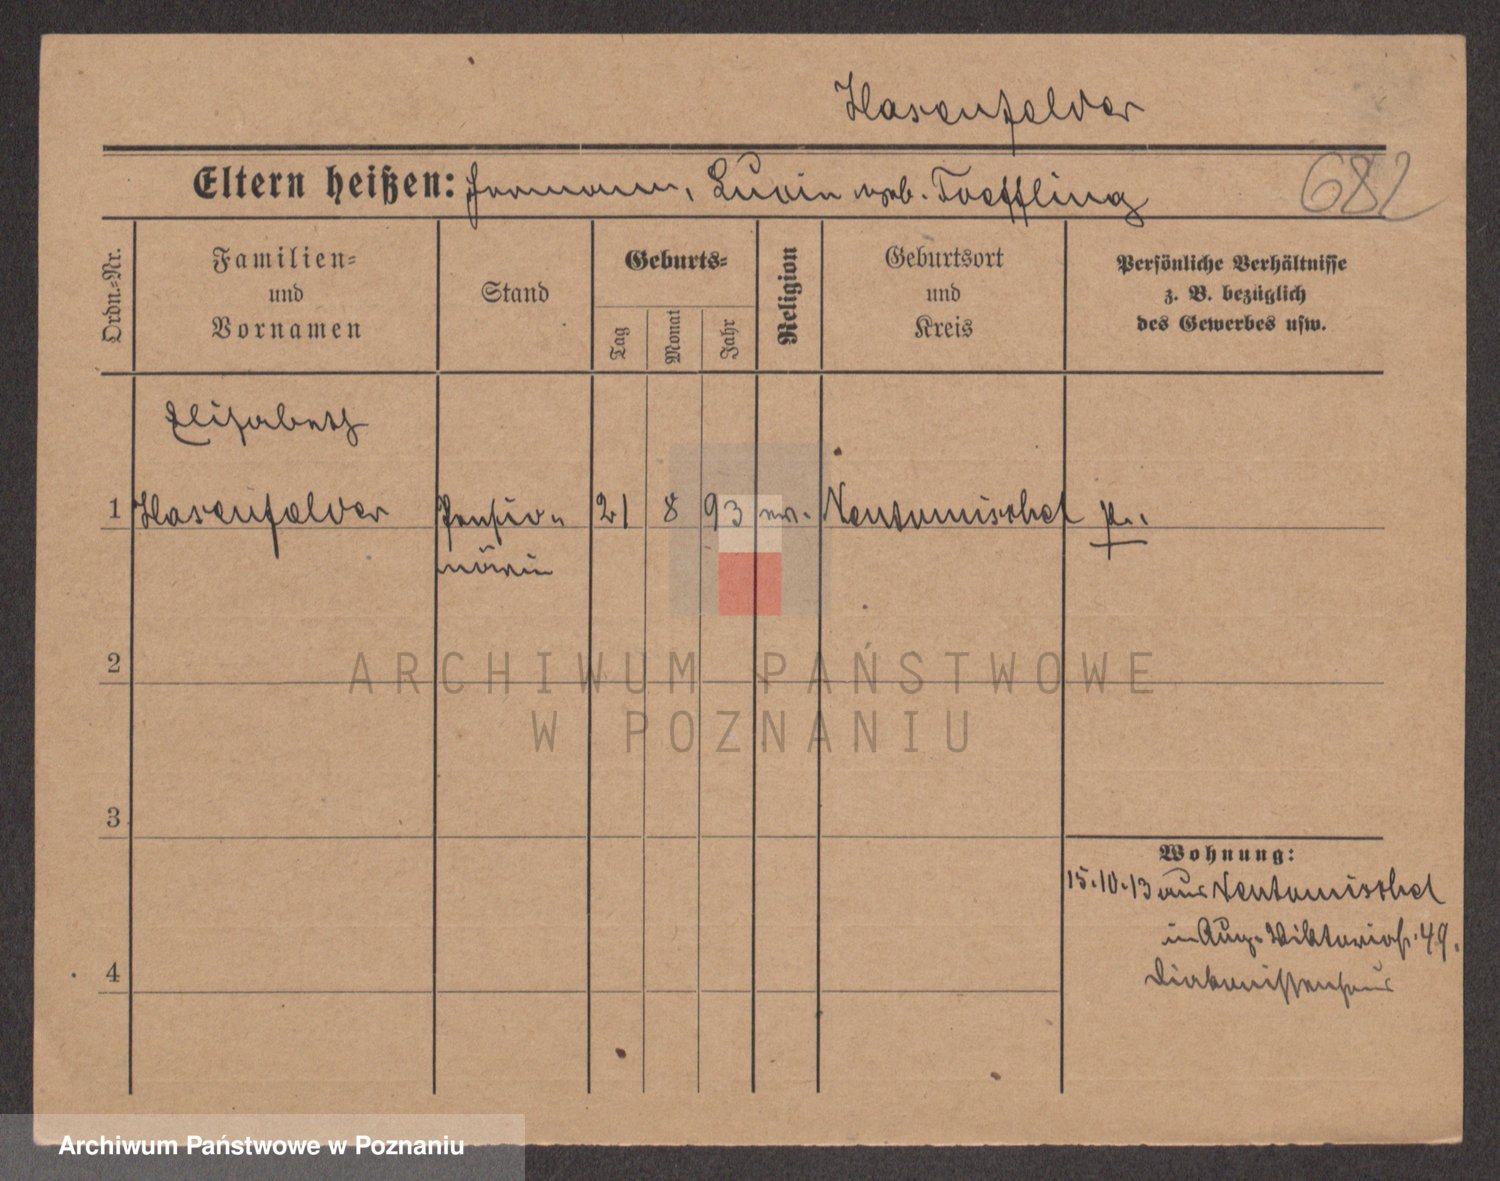 Hasenfelder
682
Eltern heißen: Hermann, Luoin geb. Toeffling
Ordn.-Nr.
Familien-
und
Vornamen
Stand
Geburts-
Tag
Monat
Jahr
Religion
Geburtsort
und
Kreis
Persönliche Verhältnisse
z. B. bezüglich
des Gewerbes usw.
Elisabeth
1 Hasenfelder Pensio- 21 8 93 ev. Neutomischel
närin
2
3
4
Wohnung:
15.10.13 aus Neutomischel
in Aug. Viktoriast. 49.
Diakonissenhaus
ARCHIWUM PAŃSTWOWE
W POZNANIU
Archiwum Państwowe w Poznaniu